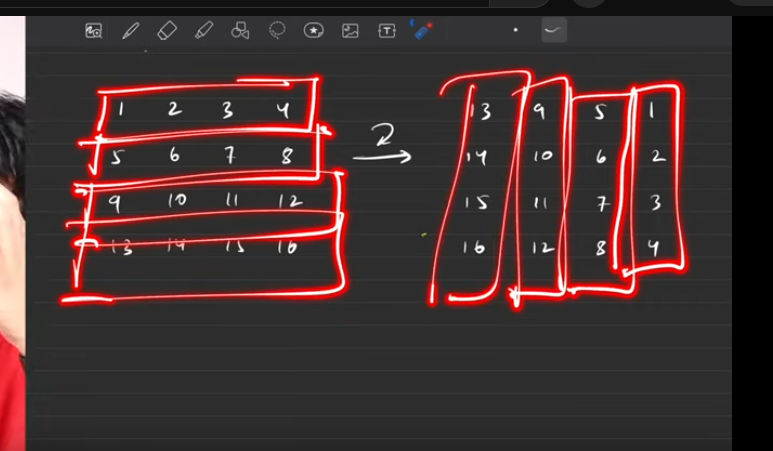 1 2 3 4
5 6 7 8
9 10 11 12
13 14 15 16
13 9 5 1
14 10 6 2
15 11 7 3
16 12 8 4